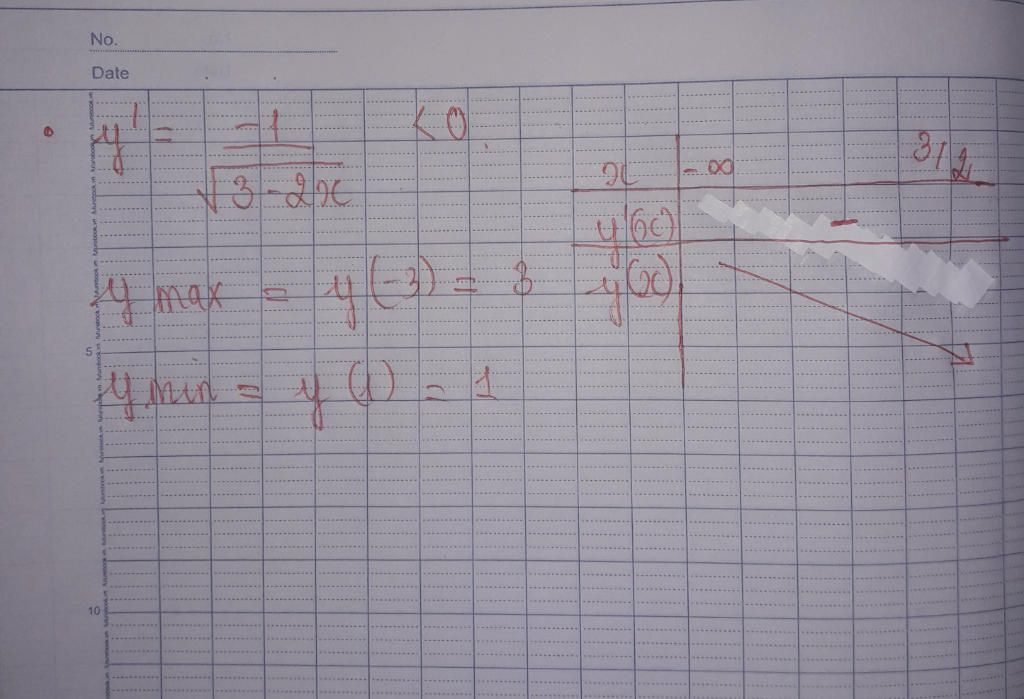 No.
Date
y' = -1 / √(3-2x) < 0
x | -∞ 3/2
y'(x) | -
y(x)
y max = y(-3) = 3
y min = y(1) = 1
5
10